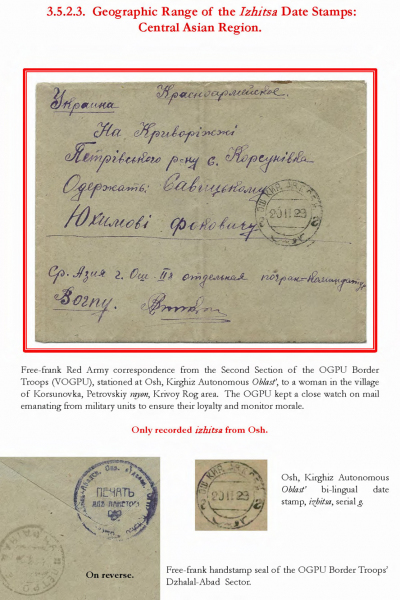 3.5.2.3. Geographic Range of the Izhitsa Date Stamps:
Central Asian Region.
Украина
Красноармейское.
На Криворіжжі
Петрівського р-ну с. Корсунівка
Одержать: Савицькому
Юхимові Фоковичу
20 11 23
Ср. Азия г. Ош II я отдельная погран-Комендатура
Вогпу.
Free-frank Red Army correspondence from the Second Section of the OGPU Border
Troops (VOGPU), stationed at Osh, Kirghiz Autonomous Oblast', to a woman in the village
of Korsunovka, Petrovskiy rayon, Krivoy Rog area. The OGPU kept a close watch on mail
emanating from military units to ensure their loyalty and monitor morale.
Only recorded izhitsa from Osh.
ПЕЧАТЬ
ДЛЯ ПАКЕТОВ
On reverse.
Osh, Kirghiz Autonomous
Oblast' bi-lingual date
stamp, izhitsa, serial g.
Free-frank handstamp seal of the OGPU Border Troops'
Dzhalal-Abad Sector.